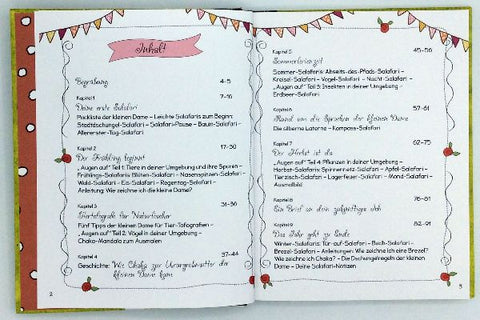 Inhalt
Begrüßung 4-5
Kapitel 1 7-16
Deine erste Salafari
Packliste der kleinen Dame – Leichte Salafaris zum Beginn:
Stadtdschungel-Salafari – Salafari-Pause – Baum-Salafari –
Allererster-Tag-Salafari
Kapitel 2 17-30
Der Frühling beginnt
„Augen auf" Teil 1: Tiere in deiner Umgebung und ihre Spuren –
Frühlings-Salafaris: Blüten-Salafari – Nasenspitzen-Salafari –
Wald-Salafari – Eis-Salafari – Regentag-Salafari –
Anleitung: Wie zeichnen ich die kleine Dame?
Kapitel 3 31-36
Fünf Tipps der kleinen Dame für Tier-Fotografen –
„Augen auf" Teil 2: Vögel in deiner Umgebung –
Chaka-Mandala zum Ausmalen
Kapitel 4 37-44
Geschichte: Wie Chaka zur
kleinen Dame kam
2
Kapitel 5 45-56
Sommerferienzeit
Sommer-Salafaris: Abseits-des-Pfads-Salafari –
Kreisel-Salafari – Vogel-Salafari – Nacht-Salafari –
„Augen auf" Teil 3: Insekten in deiner Umgebung –
Erdbeer-Salafari
Kapitel 6 57-61
Rund um die Sprachen der kleinen Dame
Die silberne Laterne – Kompass-Salafari
Kapitel 7 62-75
Der Herbst ist da
„Augen auf" Teil 4: Pflanzen in deiner Umgebung –
Herbst-Salafaris: Spinnennetz-Salafari – Apfel-Salafari –
Tierzisch-Salafari – Lagerfeuer-Salafari – Mond-Salafari –
Ausmalbild
Kapitel 8 76-81
Ein Brief an dein zukünftiges Ich
Kapitel 9 82-91
Das Jahr geht zu Ende
Winter-Salafaris: Tür-auf-Salafari – Buch-Salafari –
Brezel-Salafari – Anleitungen: Wie zeichne ich eine Brezel?
Wie zeichne ich Chaka? – Die Dschungelregeln der kleinen
Dame – Deine Salafari-Notizen
3